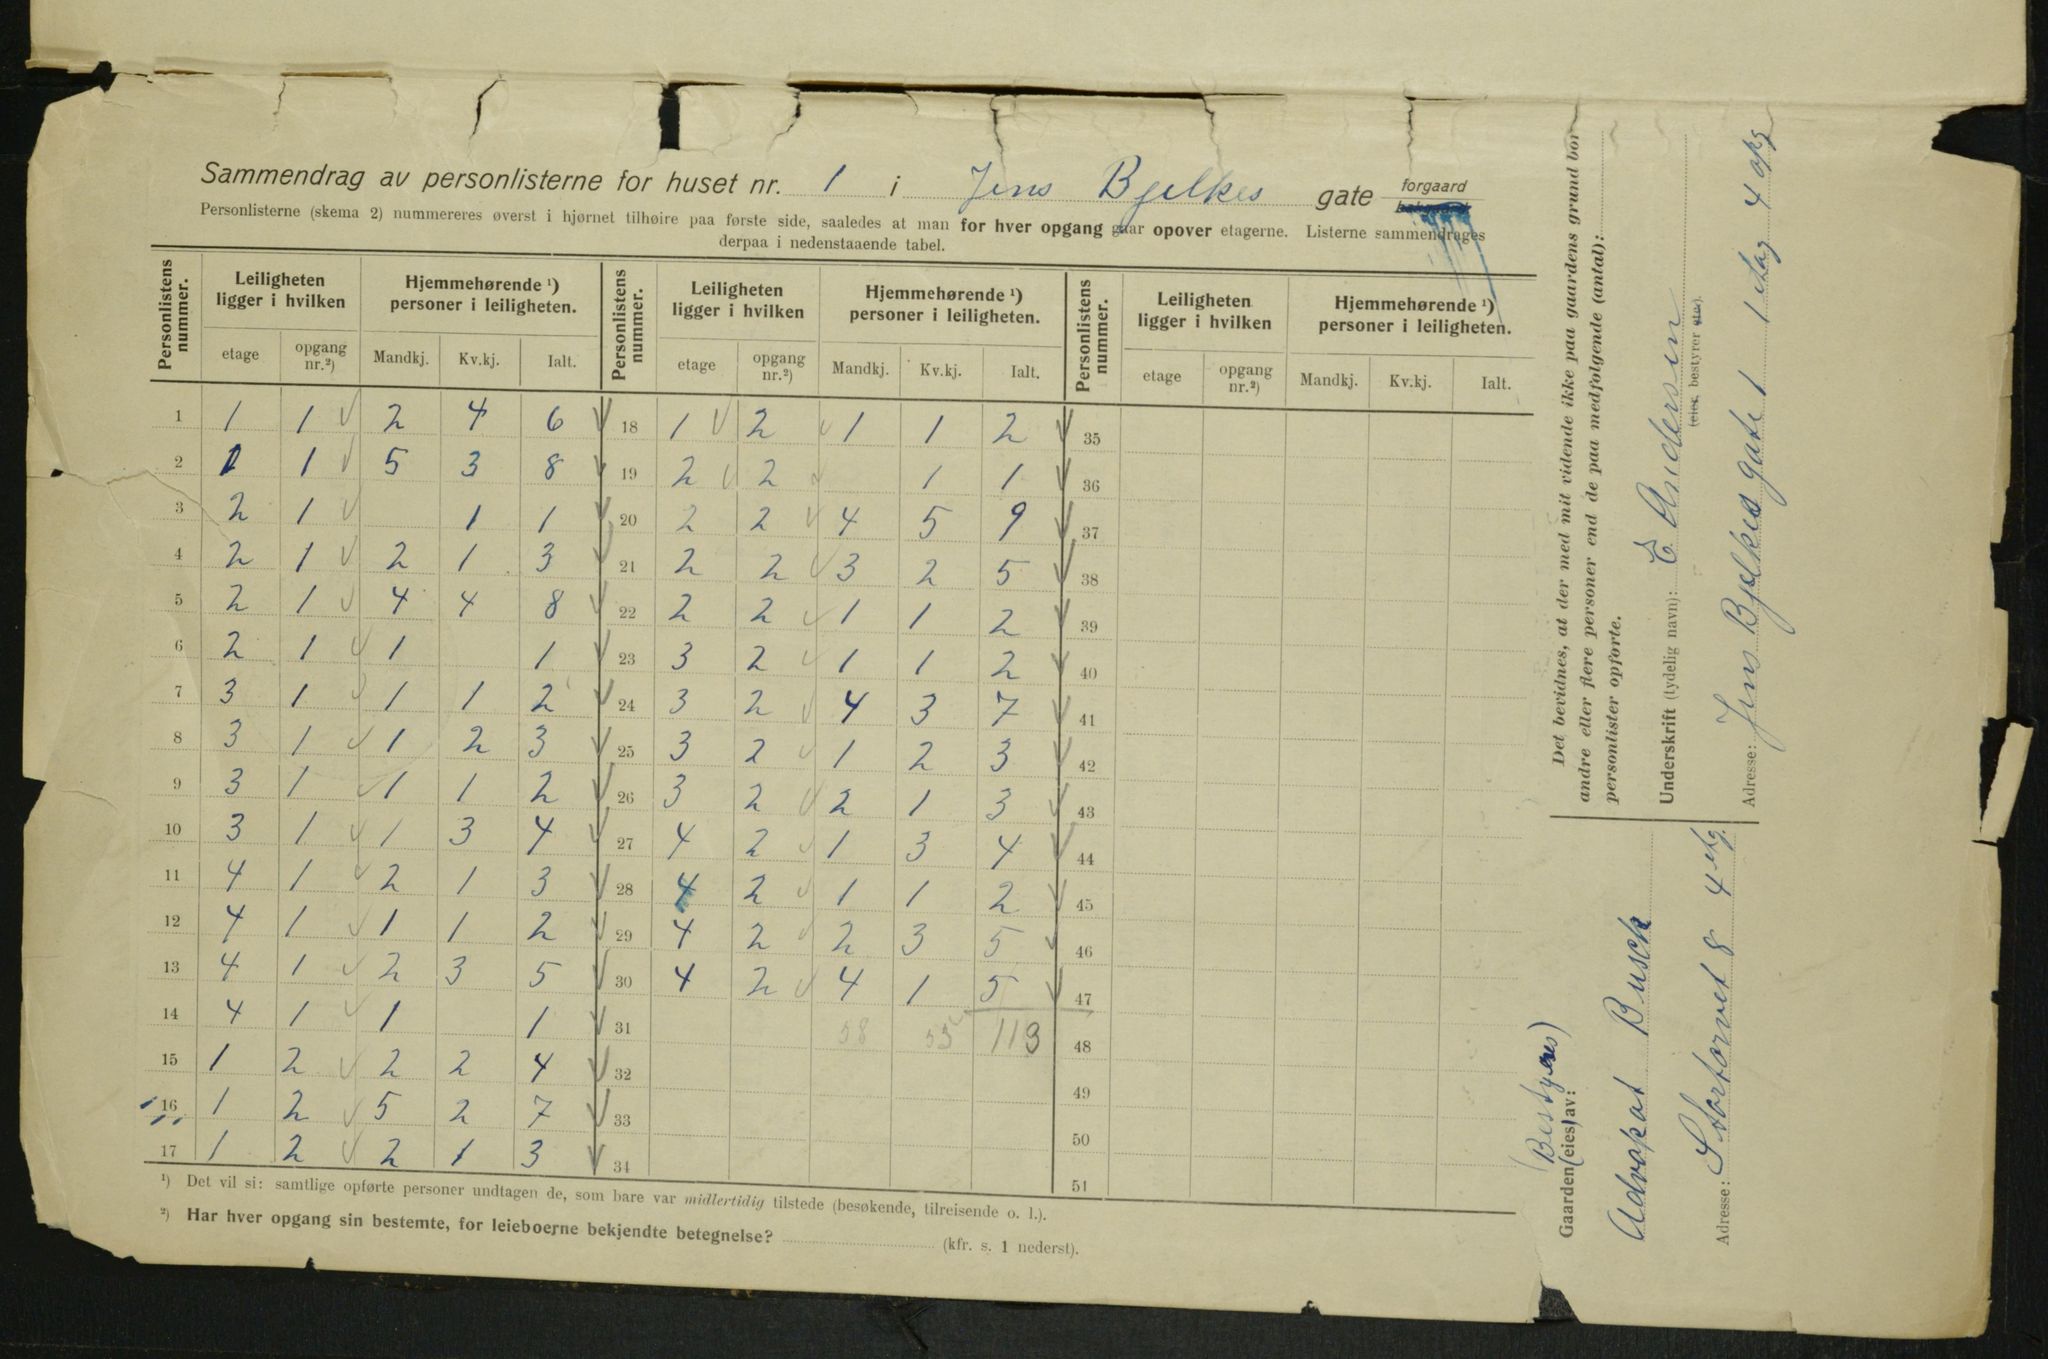 Sammendrag av personlisterne for huset nr. 1 i Jens Bjelkes gate forgaard bakgaard
Personlisterne (skema 2) nummereres øverst i hjørnet tilhøire paa første side, saaledes at man for hver opgang gaar opover etagerne. Listerne sammendrages
derpaa i nedenstaaende tabel.
Personlistens nummer. Leiligheten ligger i hvilken Hjemmehørende ¹) personer i leiligheten. Personlistens nummer. Leiligheten ligger i hvilken Hjemmehørende ¹) personer i leiligheten. Personlistens nummer. Leiligheten ligger i hvilken Hjemmehørende ¹) personer i leiligheten.
etage opgang nr.²) Mandkj. Kv.kj. Ialt. etage opgang nr.²) Mandkj. Kv.kj. Ialt. etage opgang nr.²) Mandkj. Kv.kj. Ialt.
1 1 1 2 4 6 18 1 2 1 1 2 35
2 1 1 5 3 8 19 2 2 1 1 36
3 2 1 1 1 20 2 2 4 5 9 37
4 2 1 2 1 3 21 2 2 3 2 5 38
5 2 1 4 4 8 22 2 2 1 1 2 39
6 2 1 1 1 23 3 2 1 1 2 40
7 3 1 1 1 2 24 3 2 4 3 7 41
8 3 1 1 2 3 25 3 2 1 2 3 42
9 3 1 1 1 2 26 3 2 2 1 3 43
10 3 1 1 3 4 27 4 2 1 3 4 44
11 4 1 2 1 3 28 4 2 1 1 2 45
12 4 1 1 1 2 29 4 2 2 3 5 46
13 4 1 2 3 5 30 4 2 4 1 5 47
14 4 1 1 1 31 58 55 113 48
15 1 2 2 2 4 32 49
16 1 2 5 2 7 33 50
17 1 2 2 1 3 34 51
¹) Det vil si: samtlige opførte personer undtagen de, som bare var midlertidig tilstede (besøkende, tilreisende o. l.).
²) Har hver opgang sin bestemte, for leieboerne bekjendte betegnelse? (kfr. s. 1 nederst).
Det bevidnes, at der med mit vidende ikke paa gaardens grund bor
andre eller flere personer end de paa medfølgende (antal):
personlister opførte.
Underskrift (tydelig navn): E Andersen
(eier, bestyrer etc).
Adresse: Jens Bjelkes gate 1 1 etag 4 opg
(Bestyres)
Gaarden (eies) av:
Advokat Busch
Adresse: Stortorvet 8 4 etg.